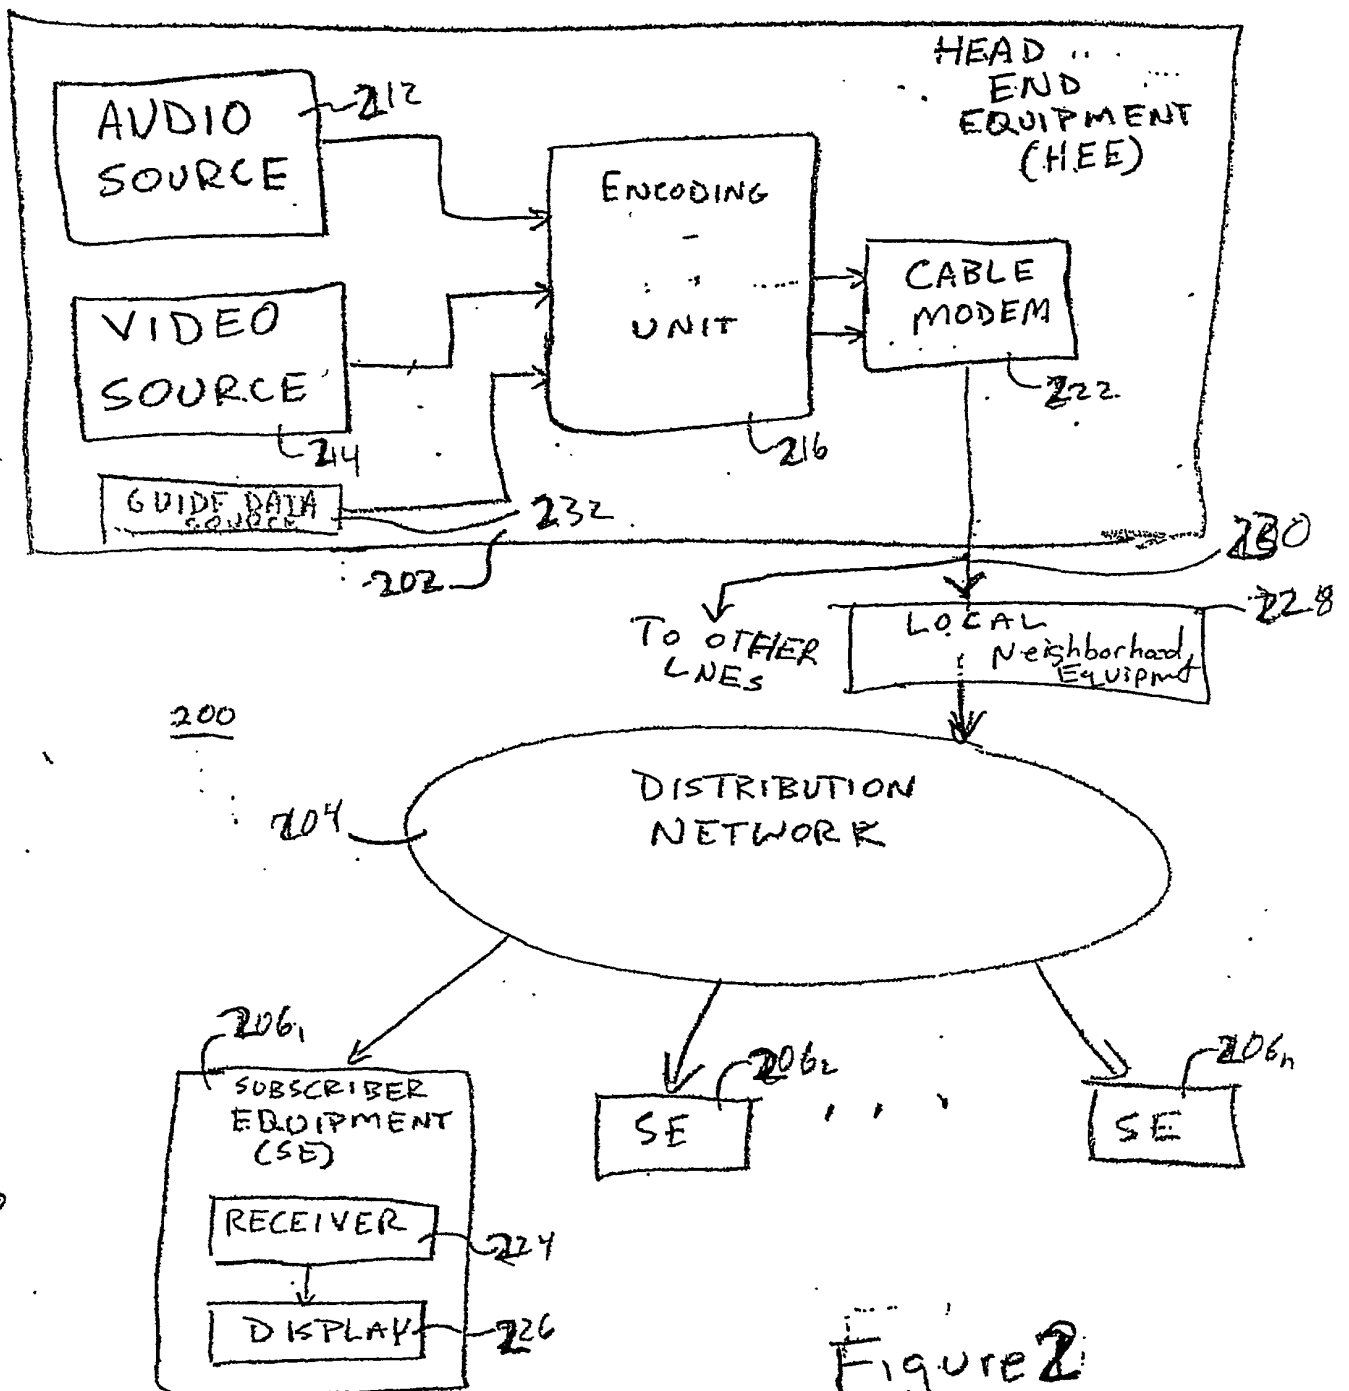 HEAD
END
EQUIPMENT
(HEE)
AUDIO
SOURCE
212
ENCODING
UNIT
216
CABLE
MODEM
222
VIDEO
SOURCE
214
GUIDE DATA
SOURCE
232
202
230
TO OTHER
LNES
LOCAL
Neighborhood
Equipmt
228
200
204
DISTRIBUTION
NETWORK
206₁
SUBSCRIBER
EQUIPMENT
(SE)
RECEIVER
224
DISPLAY
226
206₂
SE
206ₙ
SE
Figure 2